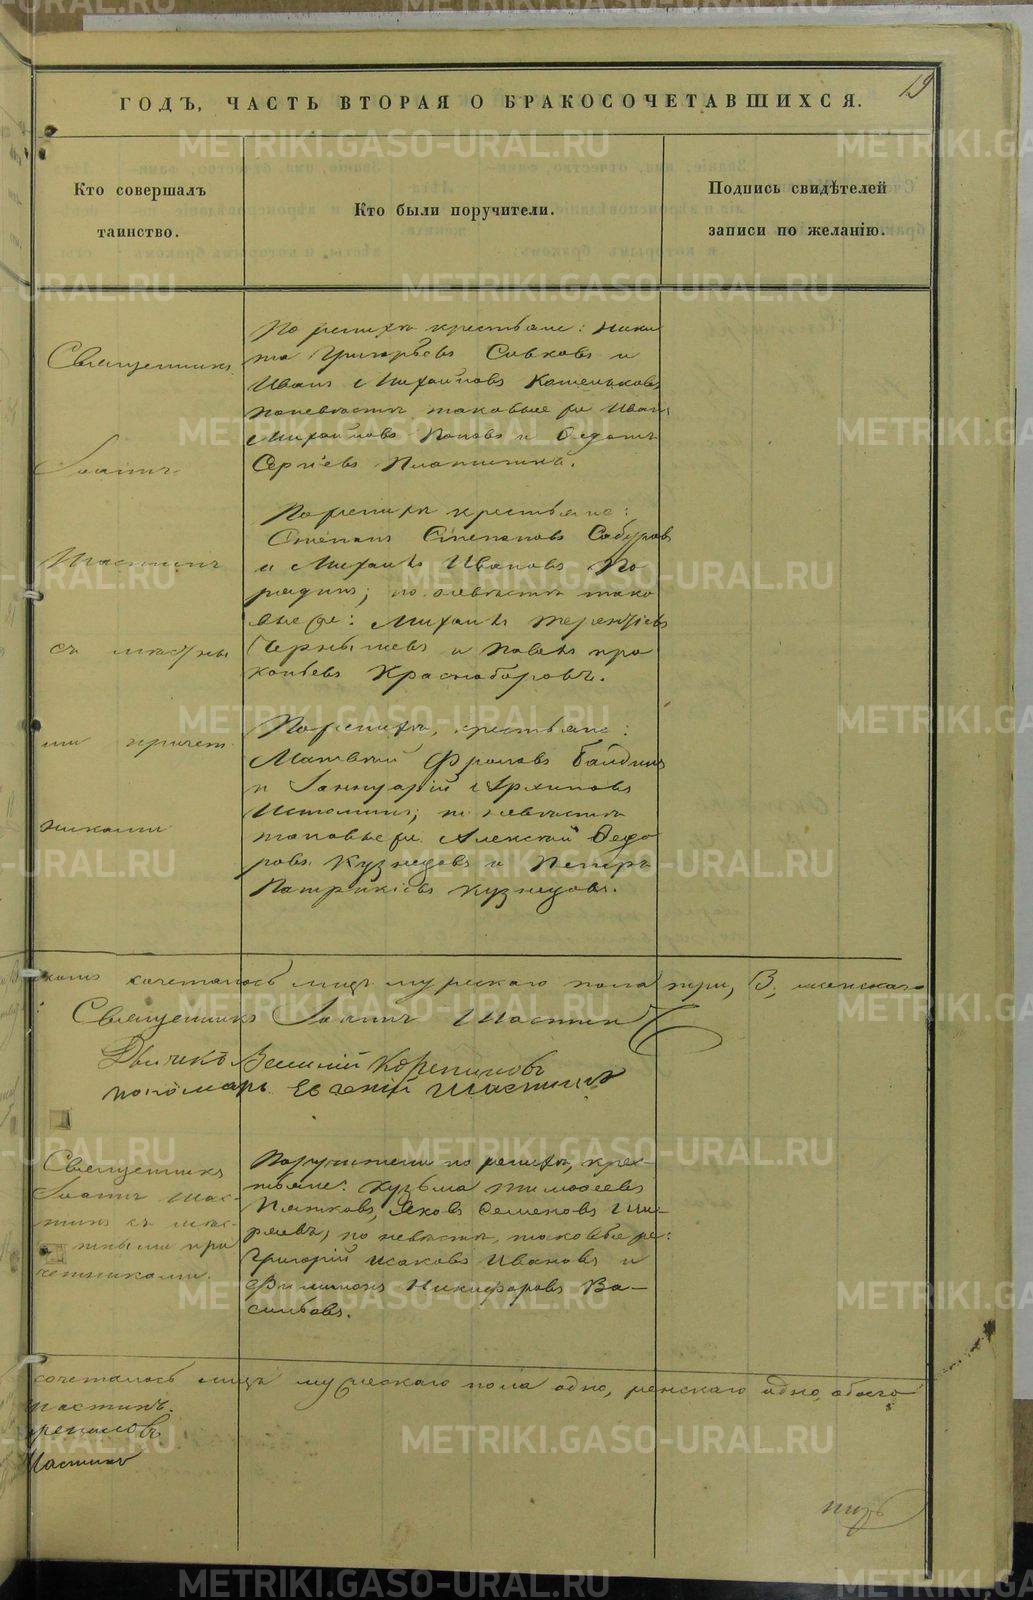 19
ГОДЪ, ЧАСТЬ ВТОРАЯ О БРАКОСОЧЕТАВШИХСЯ.
Кто совершалъ
таинство.
Кто были поручители.
Подпись свидѣтелей
записи по желанію.
Священникъ
Іоаннъ
Шастинъ
съ мѣстны
ми причет
никами
По женихѣ крестьяне: Ники
та Григорьевъ Савковъ и
Иванъ Михайловъ
по невѣстѣ таковые же Иванъ
Михайловъ Поповъ и Федотъ
Сергѣевъ
По женихѣ крестьяне:
Степанъ Степановъ Сабуровъ
и Михаилъ Ивановъ
по невѣстѣ тако
вые же: Михаилъ Терентіевъ
Чернышевъ и Павелъ Про
копьевъ Красноборовъ.
По женихѣ, крестьяне:
Матвѣй Фроловъ Байдинъ
и Іаннуарій Архиповъ
Истоминъ; по невѣстѣ
таковые же Алексѣй Федо
ровъ Кузнецовъ и Петръ
Патрикіевъ Кузнецовъ.
сочеталось лицъ мужескаго пола три, 3, женскаго
Священникъ Іоаннъ Шастинъ
Дьячекъ Василій Корепановъ
пономарь Евгений Шастинъ
Священникъ
Іоаннъ Шас-
тинъ съ мѣс-
тными при
четниками.
Поручители по женихѣ, крес-
тьяне: Кузьма Тимофеевъ
Пятковъ, Яковъ Семеновъ Ши-
ряевъ, по невѣстѣ, таковые же:
Григорій Исаковъ Ивановъ и
Филимонъ Никифоровъ Ва-
сильевъ.
сочеталось лицъ мужескаго пола одно, женскаго одно, обоего
Шастинъ.
репановъ
Шастинъ
METRIKI.GASO-URAL.RU